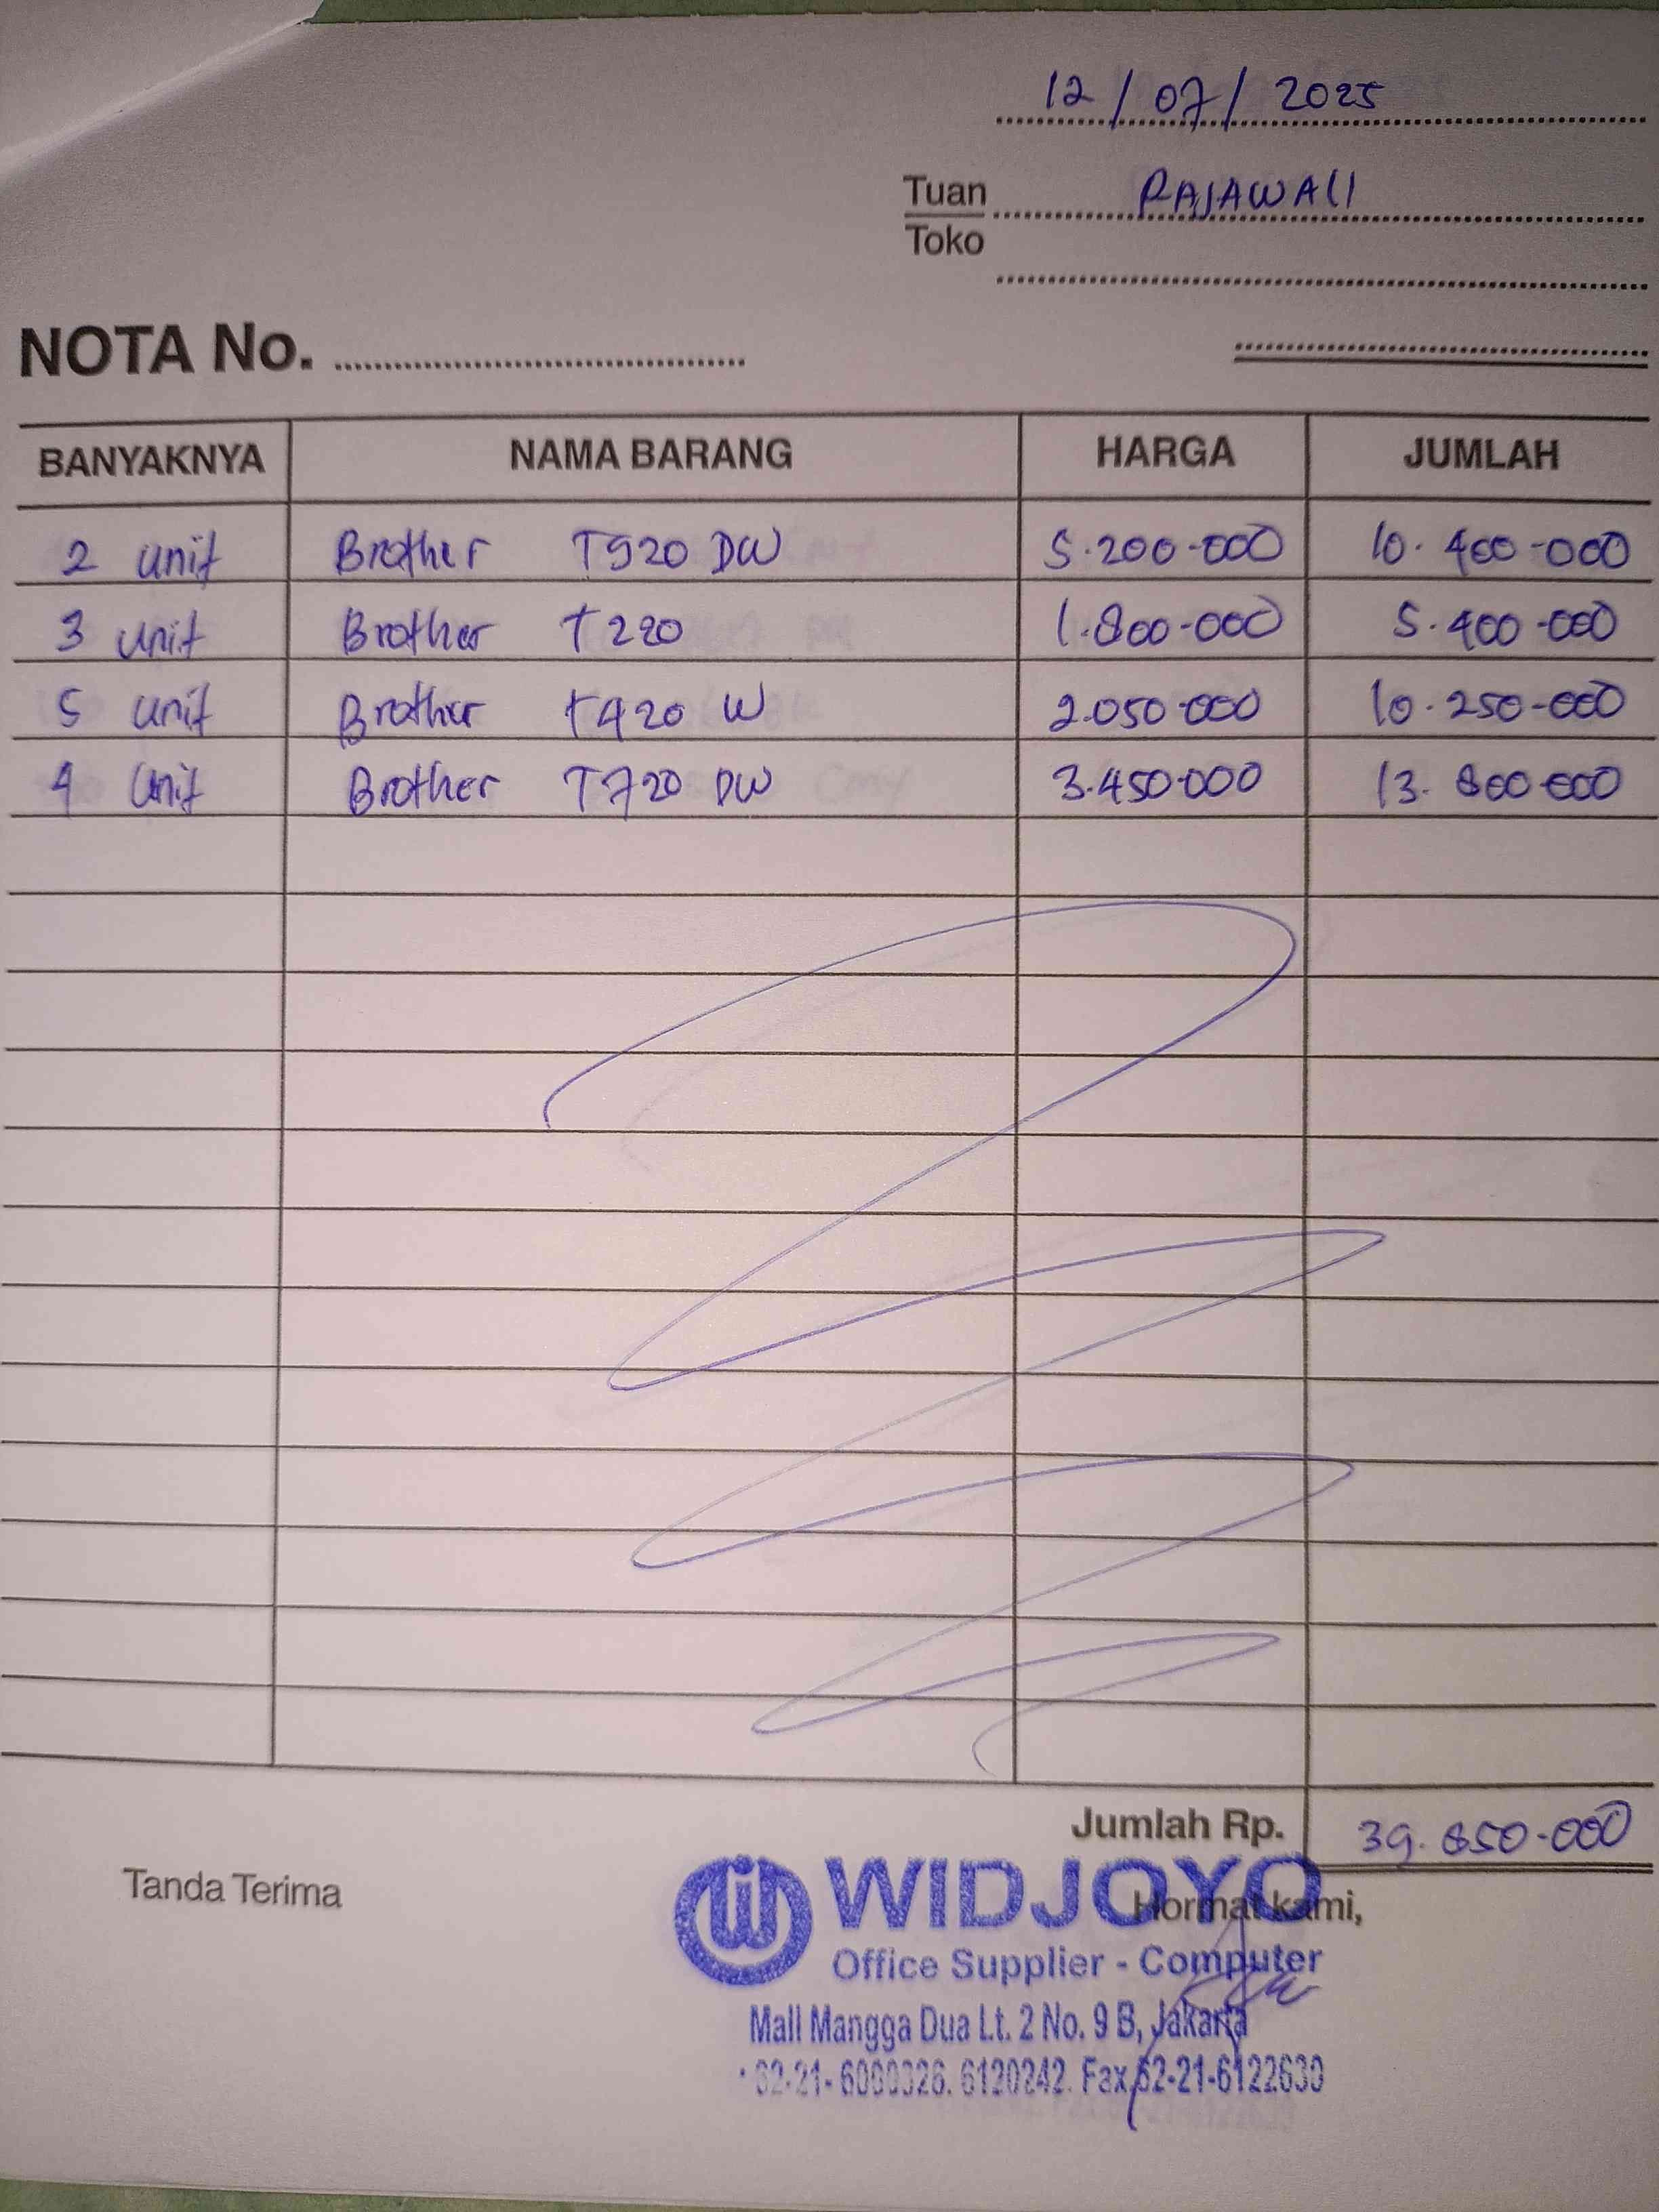 12/07/2025
Tuan RAJAWALI
Toko
NOTA No.
BANYAKNYA NAMA BARANG HARGA JUMLAH
2 unit Brother T920 DW 5.200.000 10.400.000
3 unit Brother T220 1.800.000 5.400.000
5 unit Brother T420 W 2.050.000 10.250.000
4 Unit Brother T720 DW 3.450.000 13.800.000
Jumlah Rp. 39.850.000
Tanda Terima
Hormat kami,
WIDJOYO
Office Supplier - Computer
Mall Mangga Dua Lt. 2 No. 9 B, Jakarta
62-21- 6120242. Fax 62-21-6122630